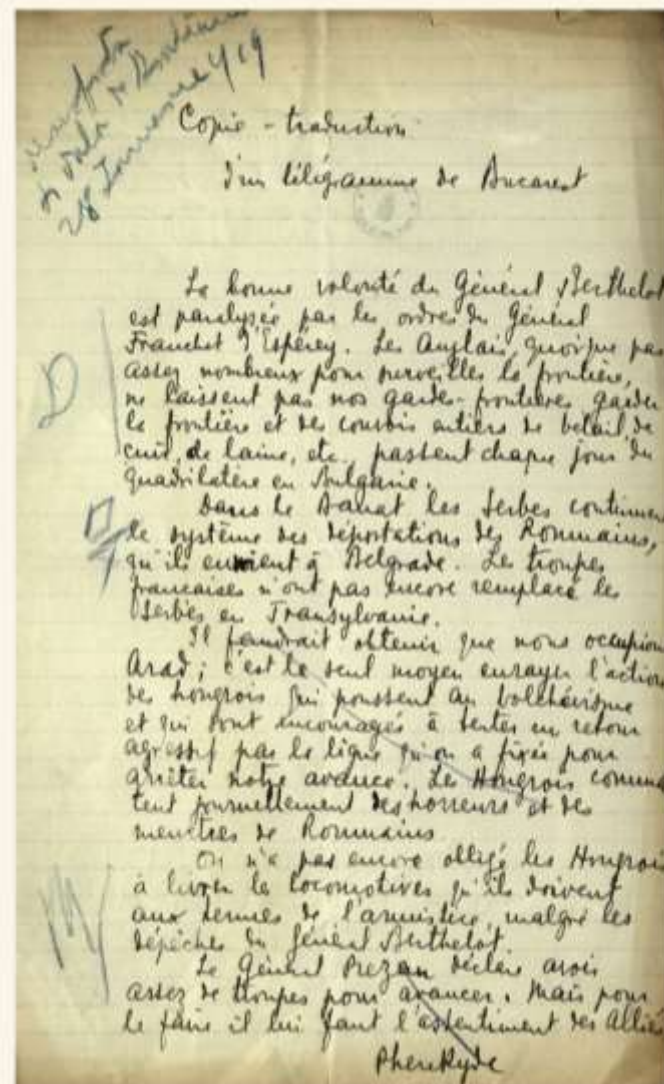 28 Ianuarie 1919
Copie - traduction
d'un télégramme de Bucarest
La bonne volonté du Général Berthelot
est paralysée par les ordres du Général
Franchet d'Espérey. Les Anglais, quoique pas
assez nombreux pour surveiller la frontière,
ne laissent pas nos gardes-frontières garder
la frontière et des convois entiers de bétail, de
cuir, de laine, etc. passent chaque jour du
quadrilatère en Bulgarie.
Dans le Banat les Serbes continuent
le système des déportations des Roumains,
qu'ils envoient à Belgrade. Les troupes
françaises n'ont pas encore remplacé les
Serbes en Transylvanie.
Il faudrait obtenir que nous occupions
Arad; c'est le seul moyen enrayer l'action
des hongrois qui poussent au bolchévisme
et qui sont encouragés à tenter un retour
agressif par la ligne qu'on a fixée pour
arrêter notre avance. Les Hongrois commet
tent journellement des horreurs et des
meurtres de Roumains.
On n'a pas encore obligé les Hongrois
à livrer les locomotives qu'ils doivent
aux termes de l'armistice, malgré les
dépêches du Général Berthelot.
Le Général Prezan déclare avoir
assez de troupes pour avancer. Mais pour
le faire il lui faut l'assentiment des Alliés
Pherekyde